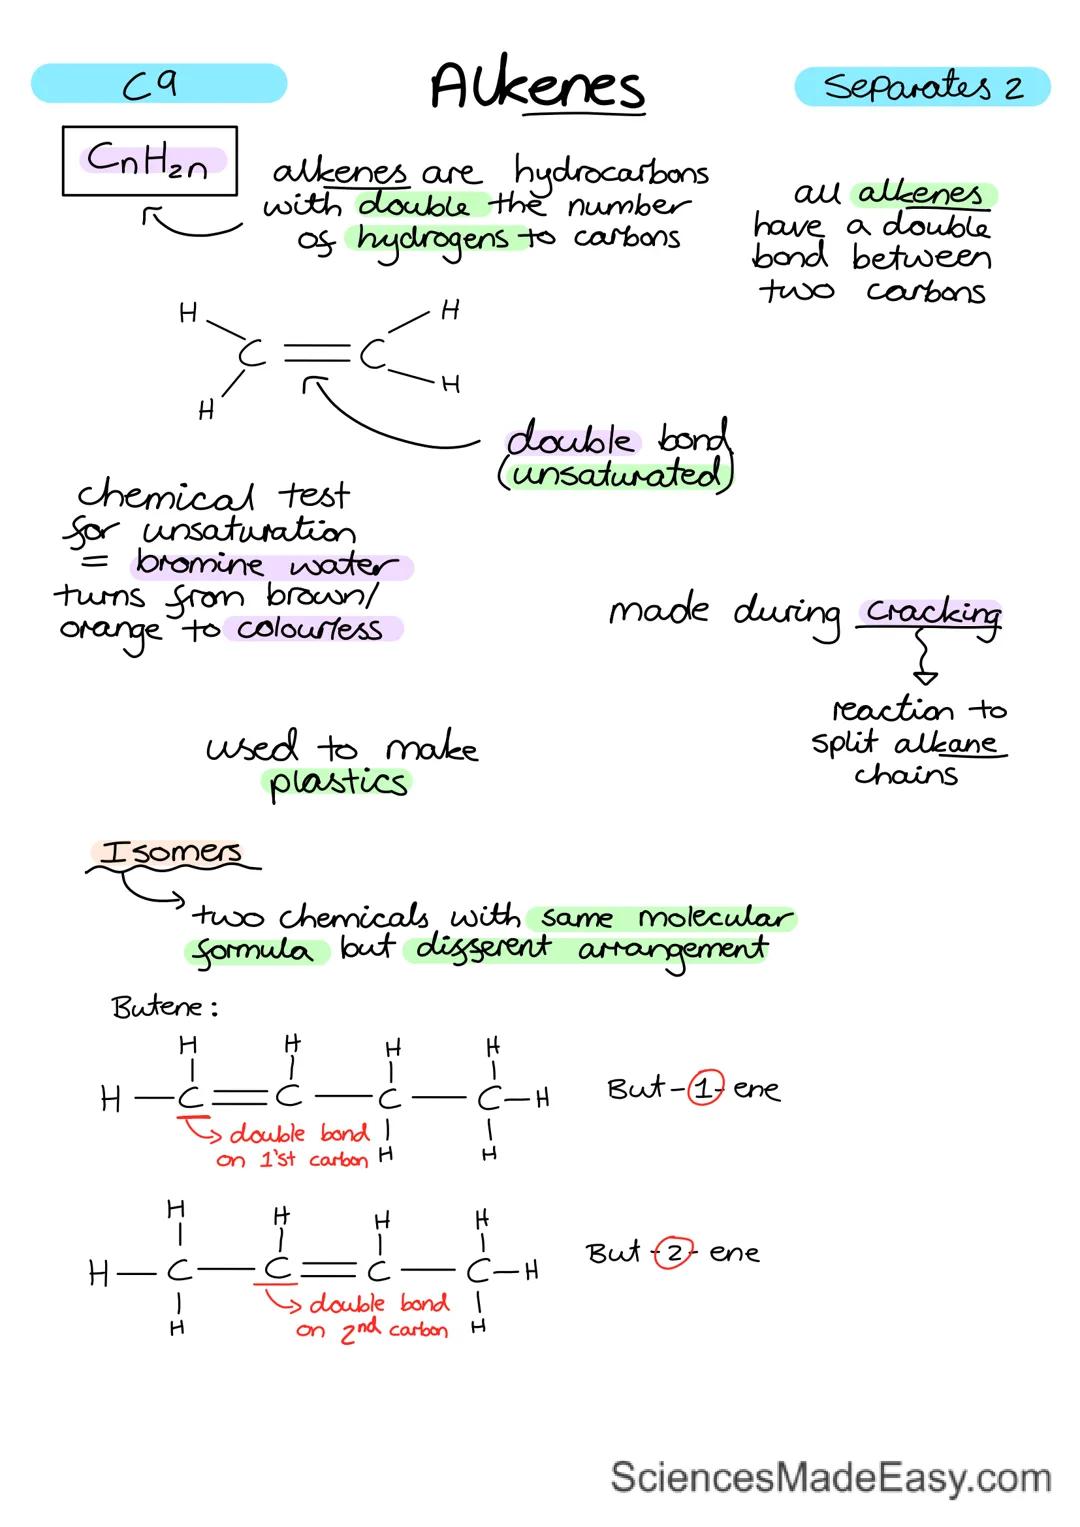 C9
Alkenes
Separates 2
CnH2n
alkenes are hydrocarbons
with double the number
of hydrogens to carbons
all alkenes
have a double
bond between
two carbons
H H
C C
H H
double bond
(unsaturated)
chemical test
for unsaturation
= bromine water
turns from brown/
orange to colourless
made during cracking
reaction to
split alkane
chains
used to make
plastics
Isomers
two chemicals with same molecular
formula but different arrangement
Butene:
H H H H
H C C C C H
H H
double bond
on 1'st carbon
But-1-ene
H H H H
H C C C C H
H H
double bond
on 2nd carbon
But-2-ene
SciencesMadeEasy.com